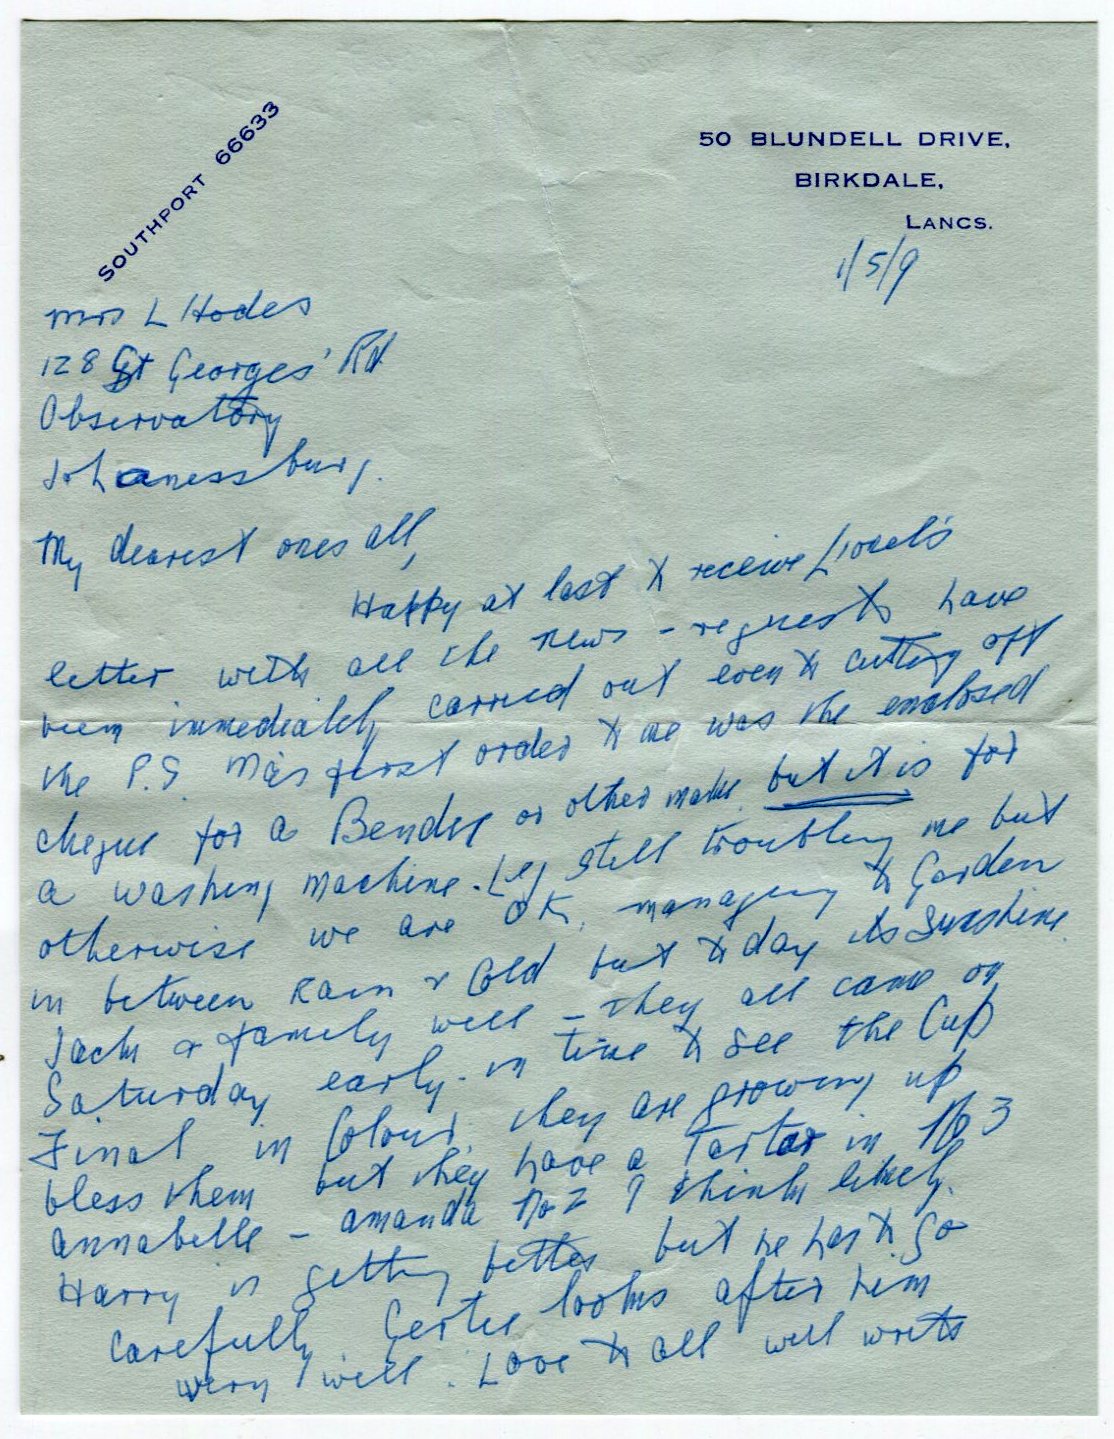 SOUTHPORT 66633
50 BLUNDELL DRIVE,
BIRKDALE,
LANCS.
1/5/9
Mrs L Hodes
128 St Georges' Rd
Observatory
Johanessburg.
My dearest ones all,
Happy at last to receive Lionel's
letter with all the news - requests have
been immediately carried out even to cutting off
the P.S. Ma's first order to me was the enclosed
cheque for a Bendix or other make but it is for
a washing machine. Leg still troubling me but
otherwise we are OK. managing to Garden
in between Rain & Cold but to day its Sunshine.
Jack & family well - They all came on
Saturday early - in time to see the Cup
Final in Colour. they are growing up
bless them but they have a Tartar in No 3
Annabelle - Amanda No 2 I think likely.
Harry is getting better but he has to go
carefully Gertie looks after him
very well. Love to all will write